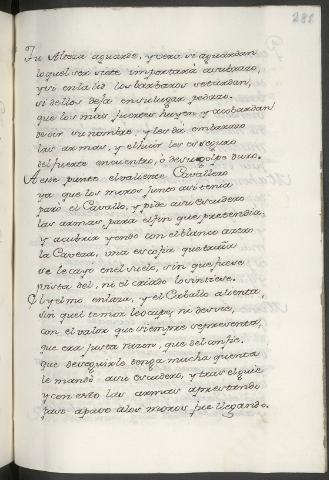 281
Tu Alteza aguarde, y verá si aguardan
lo quel ser siete importara a su brazo,
y si en la lid los barbaros se tardan,
si dellos deja en su lugar pedazo.
que los mas fuertes huyen y acobardan
de oir su nombre, y les da embarazo
las armas, y el huir les es seguro
del fuerte encuentro, ó de su golpe duro.
A este punto el valiente Cavallero
ya que los moros juntos asi tenia
paró el Cavallo, y pide a su escudero
las armas para el fin que pretendia,
y acubrir yendo con el blanco azero
la Caveza, una escofia que traîa
se le cayo en el suelo, sin que fuese
vista del, ni el criado lo sintiese.
El yelmo enlaza, y el Caballo alienta,
sin quel temor le ocupe, ni desvie,
con el valor que siempre representa,
que era justa razon, que del confie.
que de seguirle tenga mucha quenta
le mandó a su escudero, y tras el guie
y con esto las armas aprestando
paso apaso a los moros fue llegando.